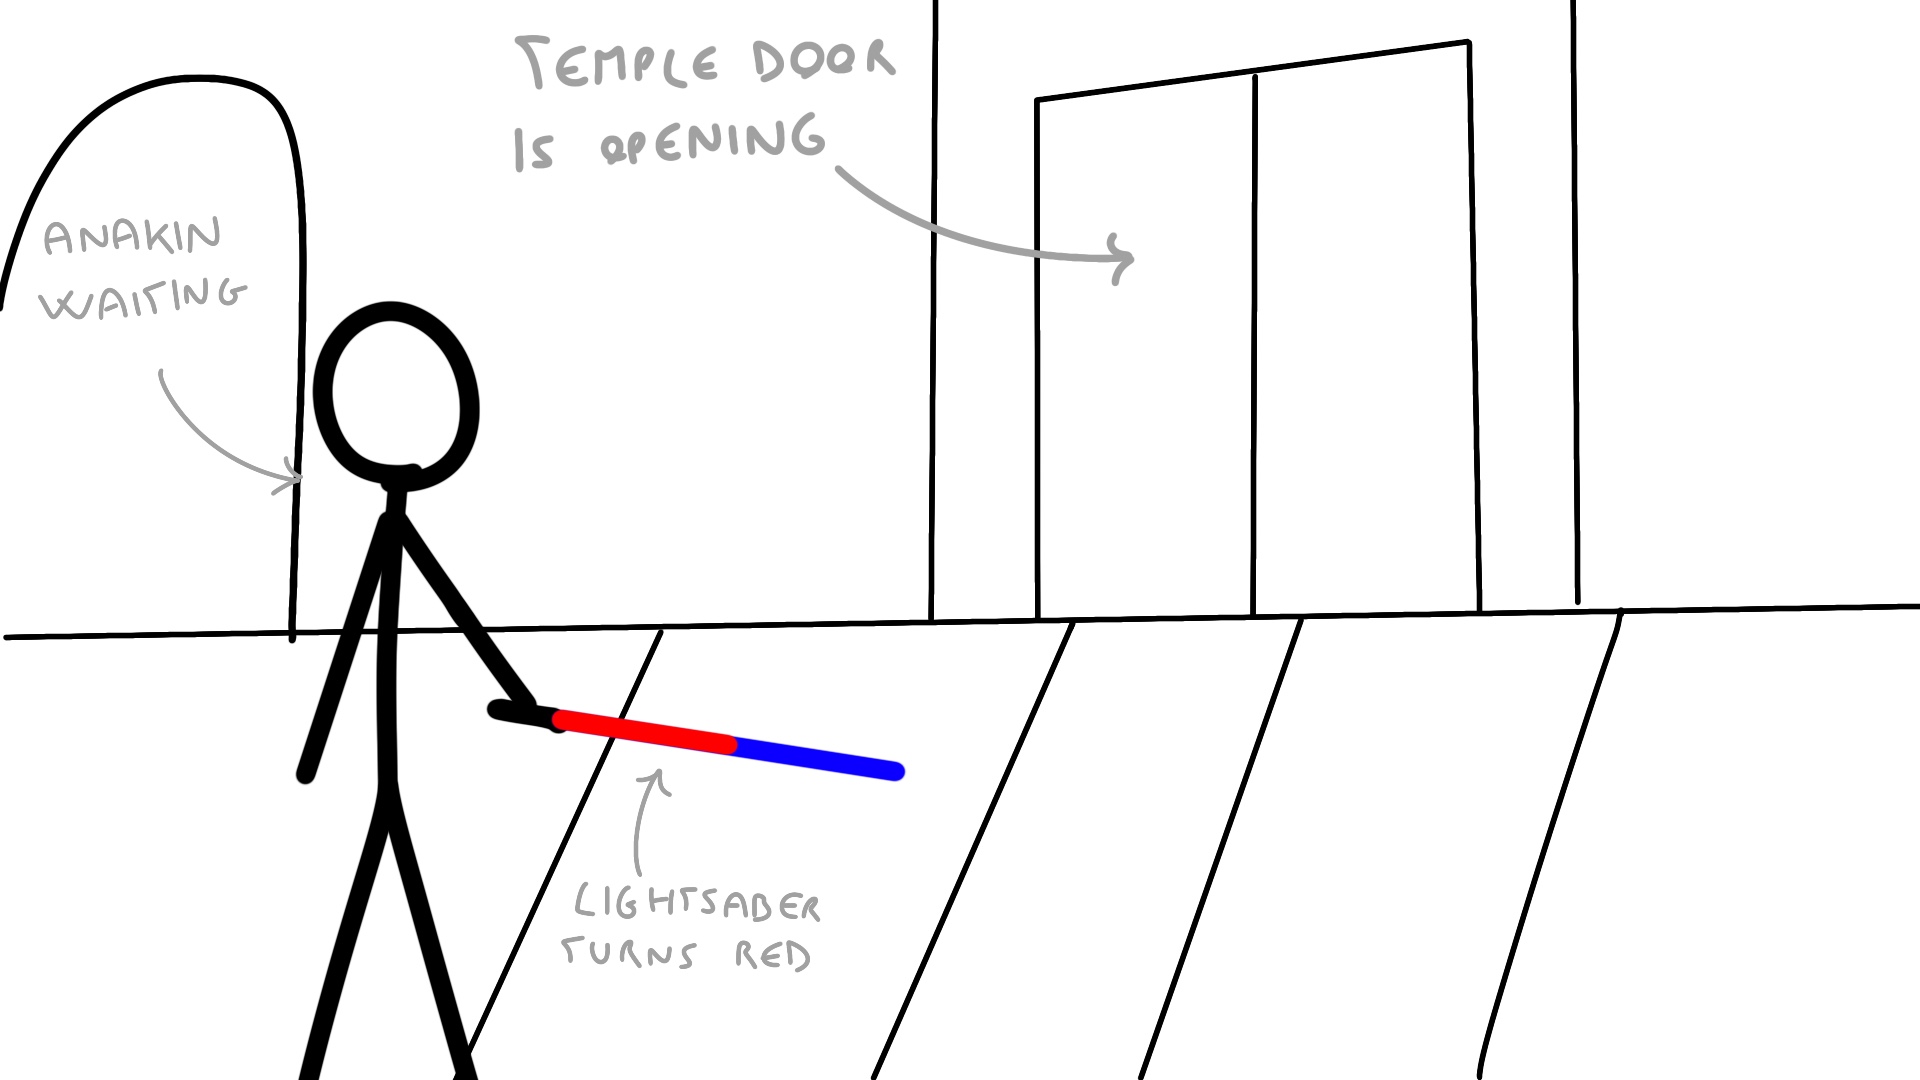 TEMPLE DOOR
IS OPENING
ANAKIN
WAITING
LIGHTSABER
TURNS RED